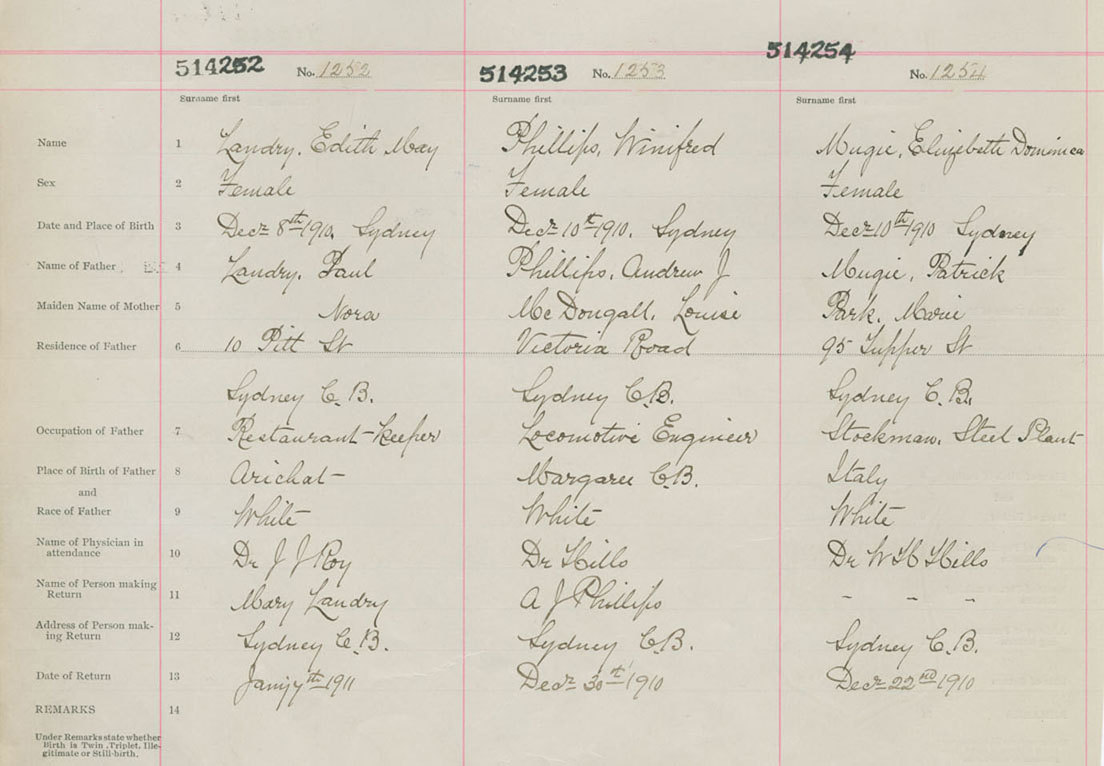 514252 No. 1252 514253 No. 1253 514254 No. 1254
Surname first Surname first Surname first
Name 1 Landry, Edith May Phillips, Winifred Mugie, Elizebeth Dominica
Sex 2 Female Female Female
Date and Place of Birth 3 Decr 8th 1910, Sydney Decr 10th 1910, Sydney Decr 10th 1910 Sydney
Name of Father 4 Landry, Paul Phillips, Andrew J Mugie, Patrick
Maiden Name of Mother 5 Nora McDougall, Louise Park, Marie
Residence of Father 6 10 Pitt St Victoria Road 95 Tupper St
Sydney C.B. Sydney C.B. Sydney C.B.
Occupation of Father 7 Restaurant-Keeper Locomotive Engineer Stockman, Steel Plant
Place of Birth of Father 8 Arichat Margaree C.B. Italy
and
Race of Father 9 White White White
Name of Physician in
attendance 10 Dr J J Roy Dr Hills Dr W H Hills
Name of Person making
Return 11 Mary Landry A J Phillips - - -
Address of Person mak-
ing Return 12 Sydney C.B. Sydney C.B. Sydney C.B.
Date of Return 13 1911 Decr 30th 1910 Decr 22nd 1910
REMARKS 14
Under Remarks state whether
Birth is Twin, Triplet, Ille-
gitimate or Still-birth.